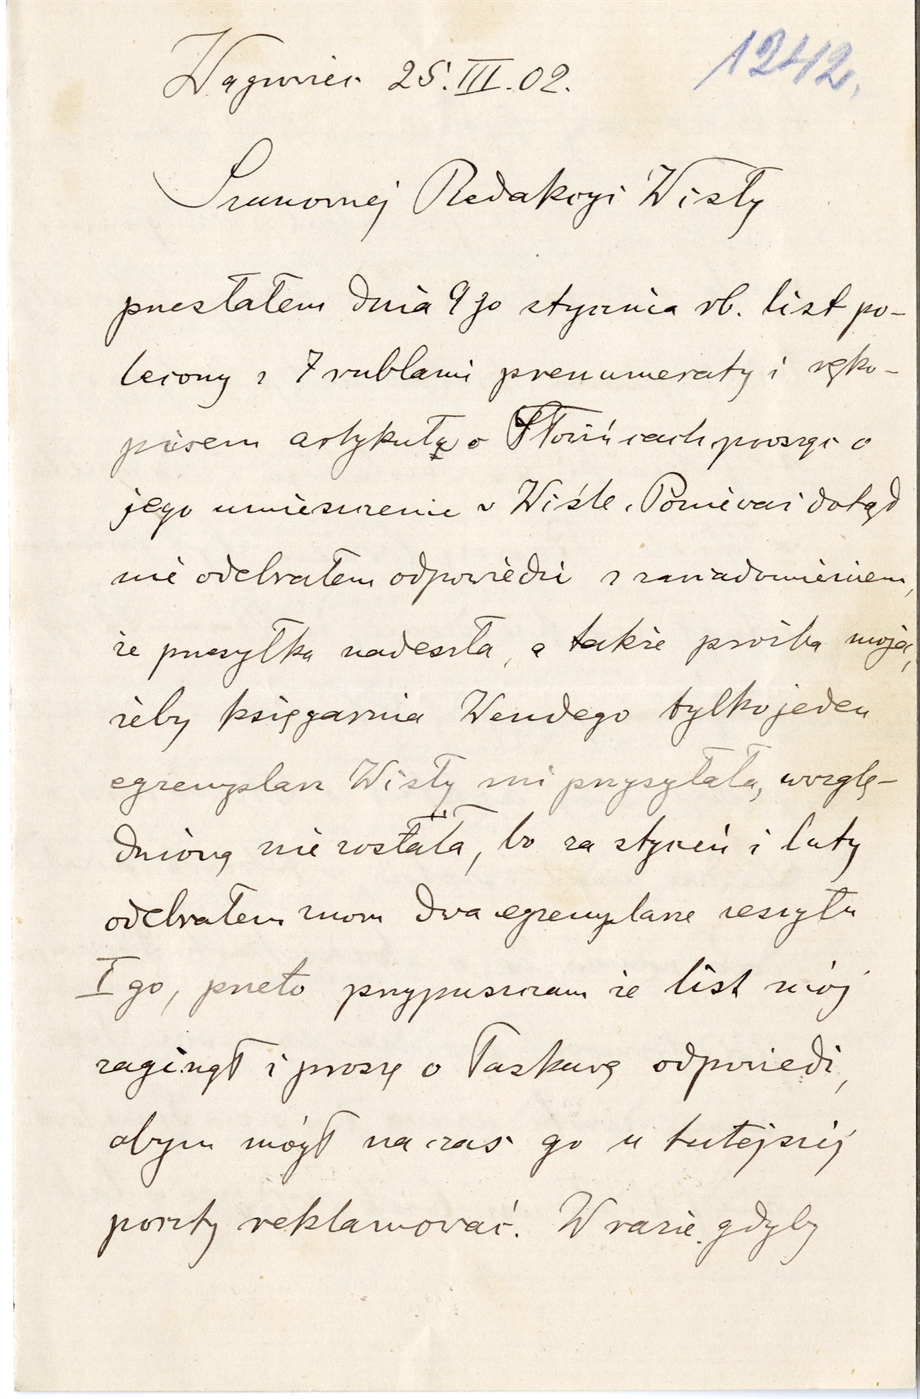 Wągrowiec 25.III.02.
1242.
Szanownej Redakcyi Wisły
przesłałem dnia 9go stycznia rb. list po-
lecony z 7 rublami prenumeraty i ręko-
pisem artykułu o prosząc o
jego umieszczenie w Wiśle. Ponieważ dotąd
nie odebrałem odpowiedzi z zawiadomieniem,
że przesyłka nadeszła, a także prośba moja,
żeby księgarnia Wendego tylko jeden
egzemplarz Wisły mi przysyłała, uwzglę-
dnioną nie została, bo za styczeń i luty
odebrałem znow dwa egzemplarze zeszytu
Igo, przeto przypuszczam że list mój
zaginął i proszę o łaskawą odpowiedź,
abym mógł na czas go u tutejszej
poczty reklamować. W razie gdyby